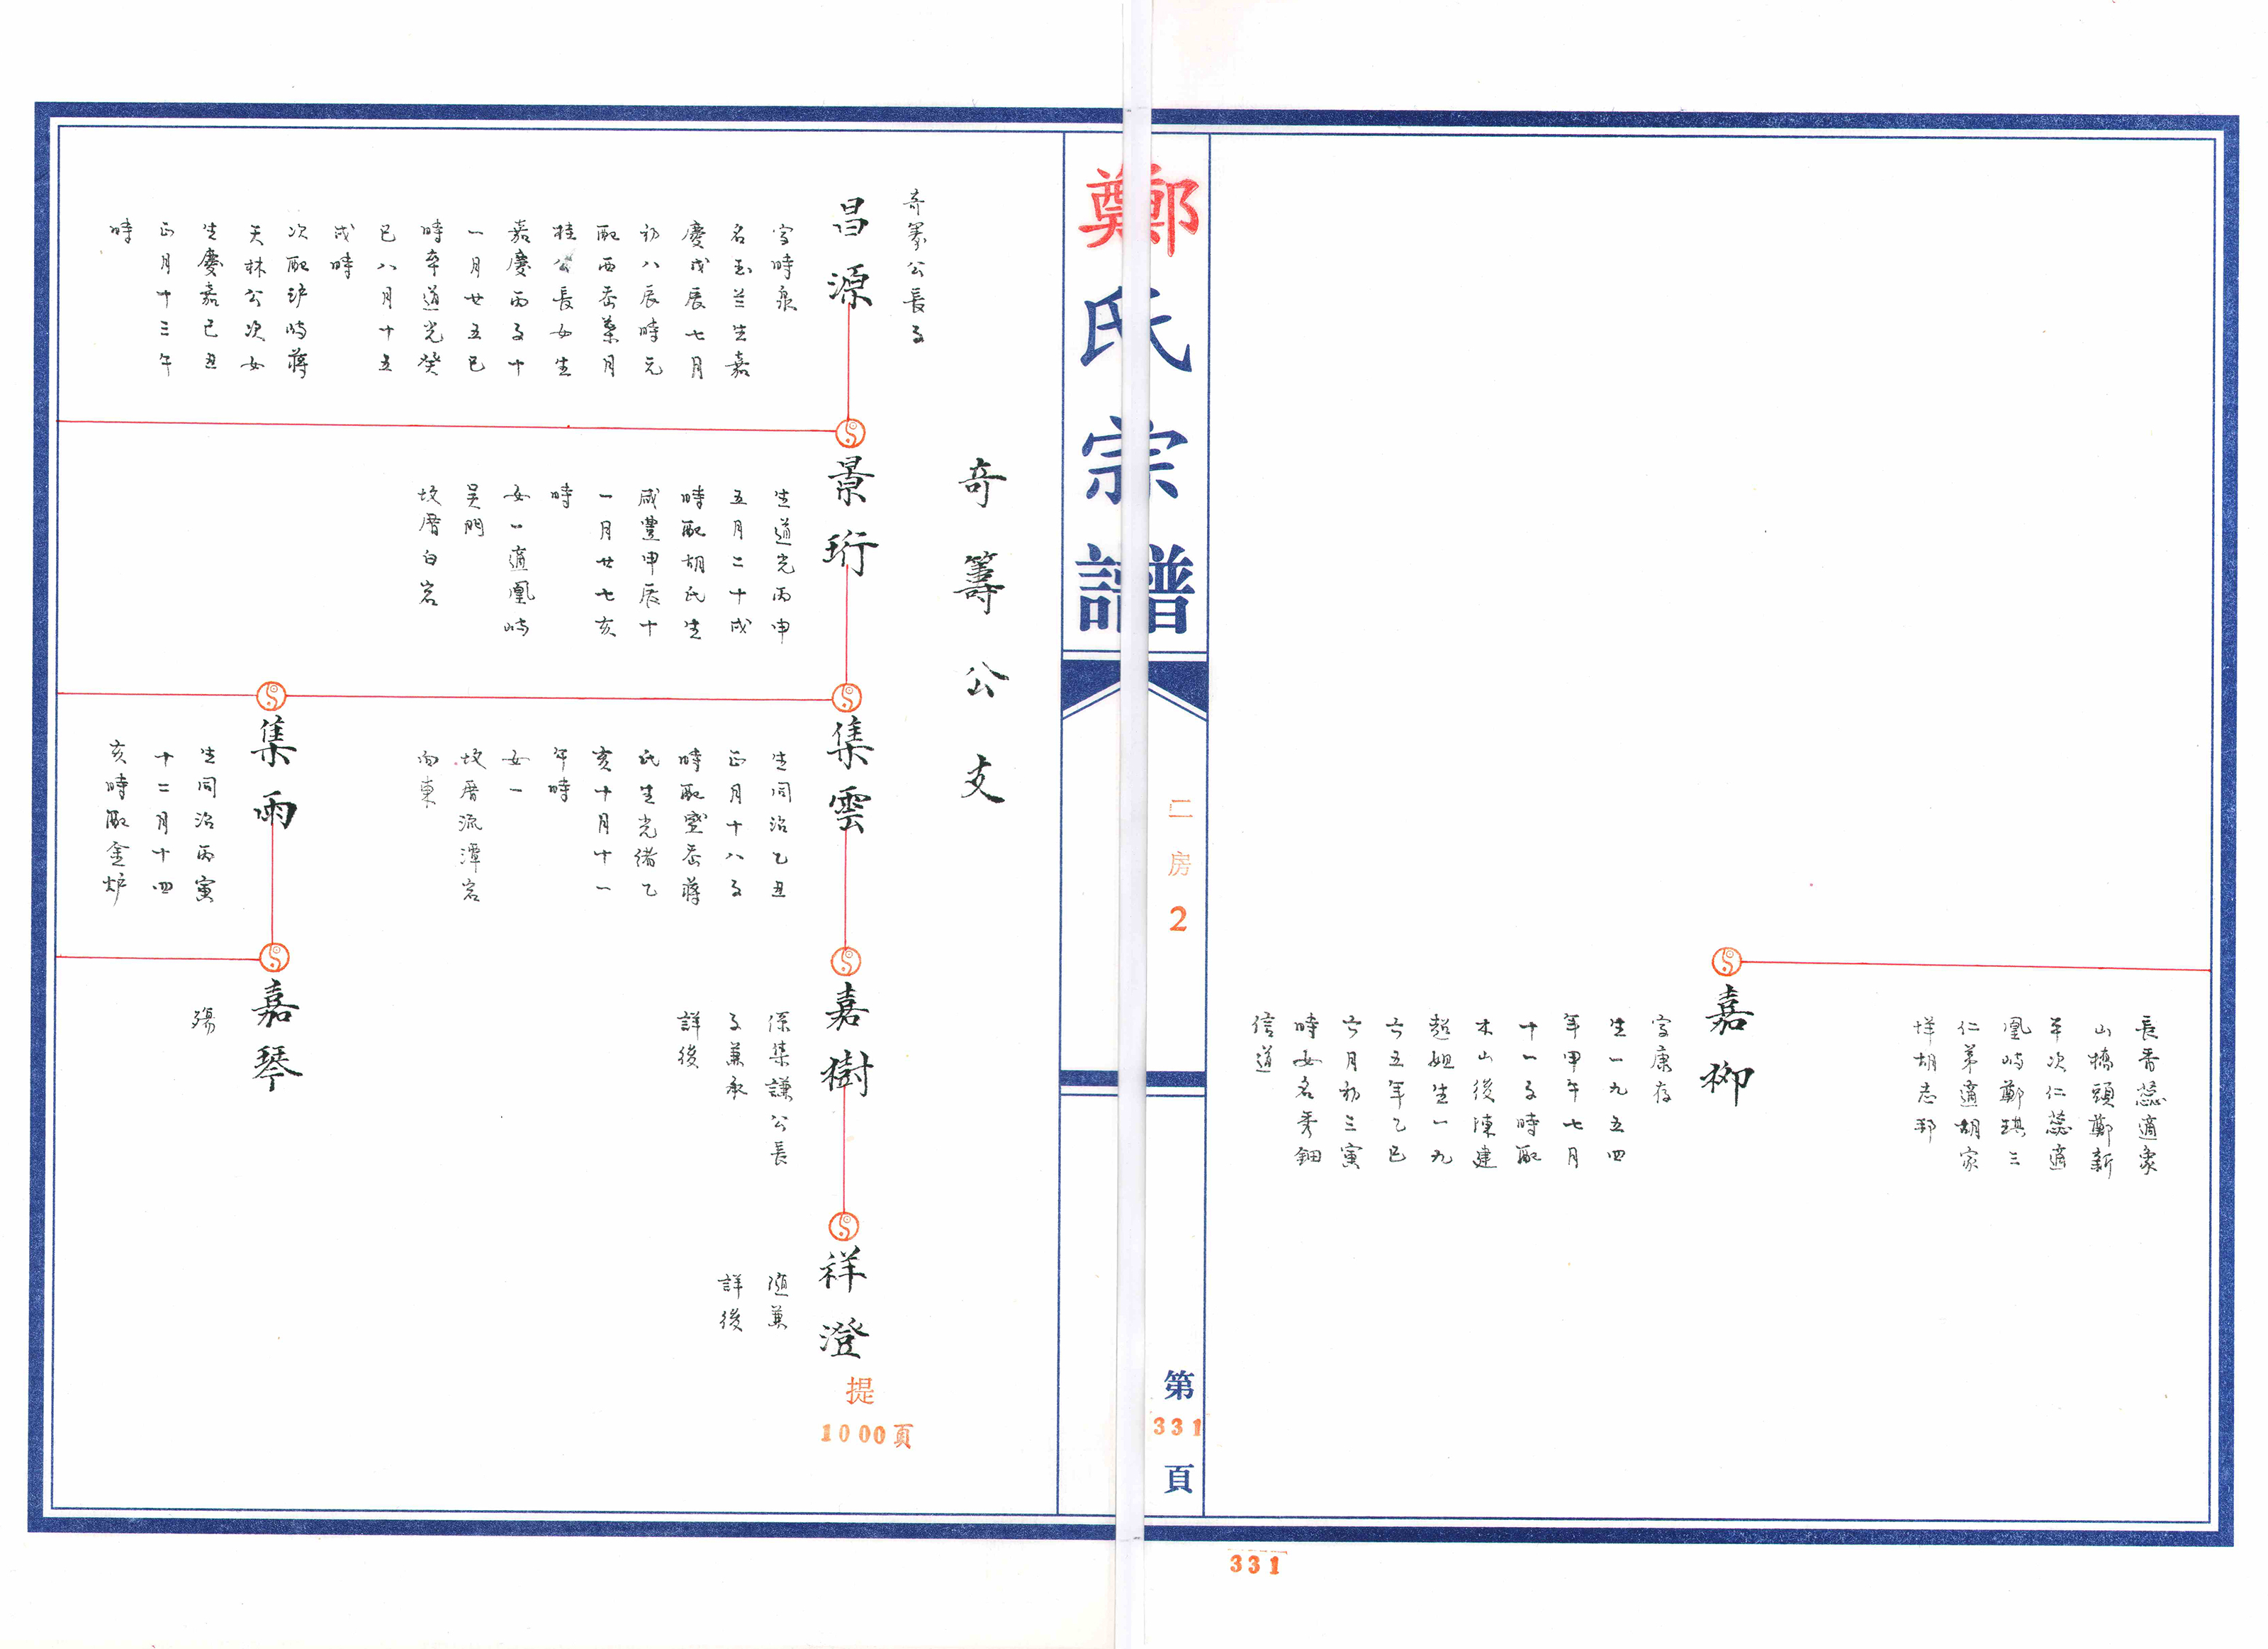 長香蕊適象
山橋頭鄭新
平次仁蕊適
鳳崎鄭琪三
仁弟適胡家
垟胡志郅
嘉柳
字康存
生一九五四
年甲午七月
十一子時配
木山後陳建
超姐生一九
六五年乙巳
六月初三寅
時女名秀鈿
信道
鄭氏宗譜
二房2
第331頁
331
奇籌公支
奇籌公長子
昌源
字時泉
名玉兰生嘉
慶戊辰七月
初八辰時元
配西岙葉月
桂公長女生
嘉慶丙子十
一月廿五巳
時卒道光癸
巳八月十五
戌時
次配沪崎蔣
天林公次女
生慶嘉己丑
正月十三午
時
景珩
生道光丙申
五月二十戌
時配胡氏生
咸豐甲辰十
一月廿七亥
時
女一適鳳崎
吳門
坟厝白岩
集雲
生同治乙丑
正月十八子
時配墾岙蔣
氏生光緒乙
亥十月十一
午時
女一
坟厝流潭岩
向東
集雨
生同治丙寅
十二月十四
亥時配金炉
嘉樹
係集謙公長
子兼承
詳後
嘉琴
殤
祥澄
隨兼
詳後
提
1000頁